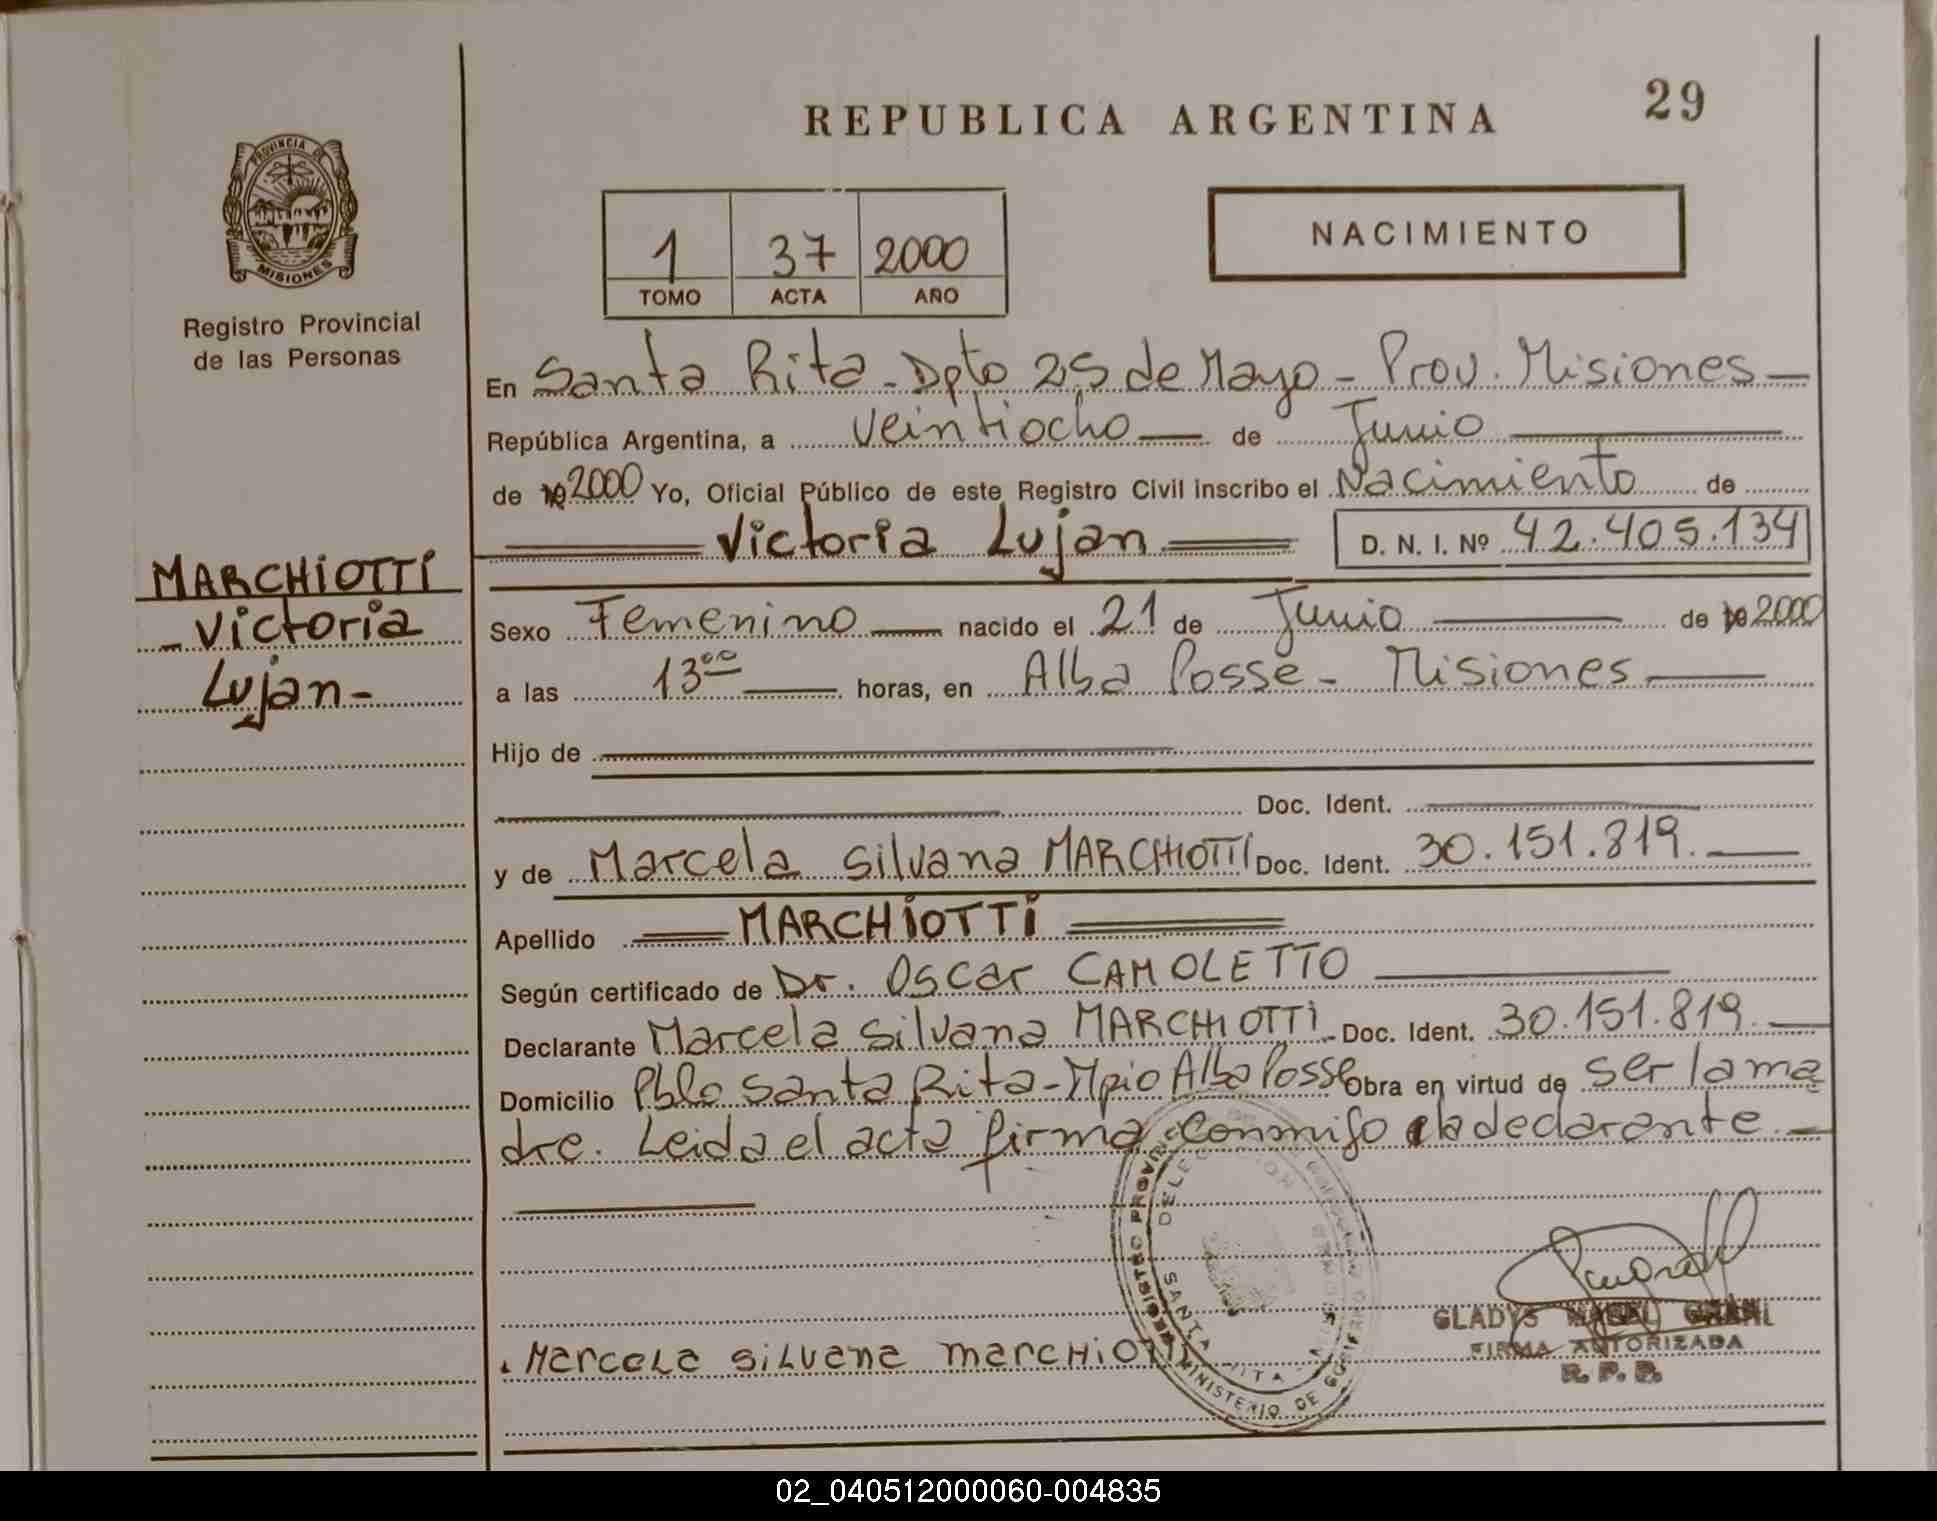 REPUBLICA ARGENTINA
29
PROVINCIA DE
MISIONES
Registro Provincial
de las Personas
1 37 2000
TOMO ACTA AÑO
NACIMIENTO
En Santa Rita - Dpto 25 de Mayo - Prov. Misiones
República Argentina, a veintiocho de Junio
de 2000 Yo, Oficial Público de este Registro Civil inscribo el Nacimiento de
Victoria Lujan D. N. I. Nº 42.405.134
MARCHIOTTI
- Victoria
Lujan -
Sexo Femenino nacido el 21 de Junio de 2000
a las 13 ºº horas, en Alba Posse - Misiones
Hijo de
Doc. Ident.
y de Marcela Silvana MARCHIOTTI Doc. Ident. 30.151.819.
Apellido MARCHIOTTI
Según certificado de Dr. Oscar CAMOLETTO
Declarante Marcela Silvana MARCHIOTTI - Doc. Ident. 30.151.819.
Domicilio Pblo Santa Rita - Mpio Alba Posse Obra en virtud de ser la ma
dre. Leida el acta firma conmigo la declarante.
GLADYS MABEL
FIRMA AUTORIZADA
R. P. P.
Marcela Silvana Marchiotti
MINISTERIO DE
SANTA RITA
02_040512000060-004835